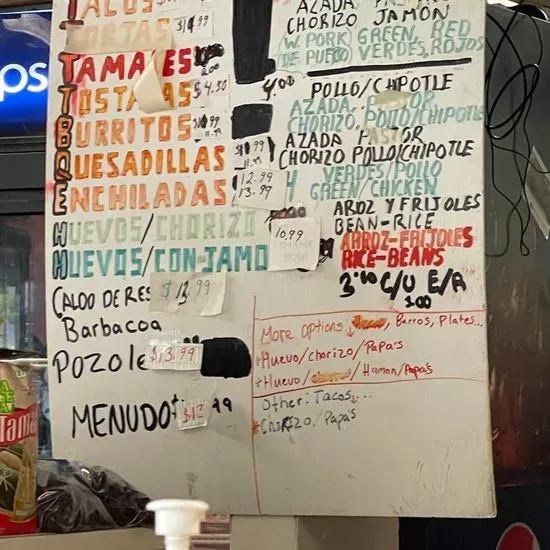 TACOS
AZADA
CHORIZO JAMÓN
TORTAS $14.99
(W. PORK) GREEN, RED
(DE PUERO) VERDES, ROJOS
TAMALES
4.00
POLLO/CHIPOTLE
TOSTADAS $4.50
AZADA PASTOR
CHORIZO, POLLO/CHIPOTLE
BURRITOS
AZADA PASTOR
CHORIZO POLLO/CHIPOTLE
QUESADILLAS
VERDES/POLLO
GREEN/CHICKEN
ENCHILADAS 12.99
13.99
AROZ Y FRIJOLES
BEAN-RICE
HUEVOS/CHORIZO 10.99
THANK YOU
ARROZ-FRIJOLES
RICE-BEANS
HUEVOS/CON-JAMO
3.00 C/U E/A
1.00
CALDO DE RES $13.99
Barbacoa
POZOLE $13.99
MENUDO
More options Burros, Plates...
*Huevo/chorizo/Papa's
*Huevo/Hamon/Papa's
Other: Tacos...
*Chorizo/Papa's
ps